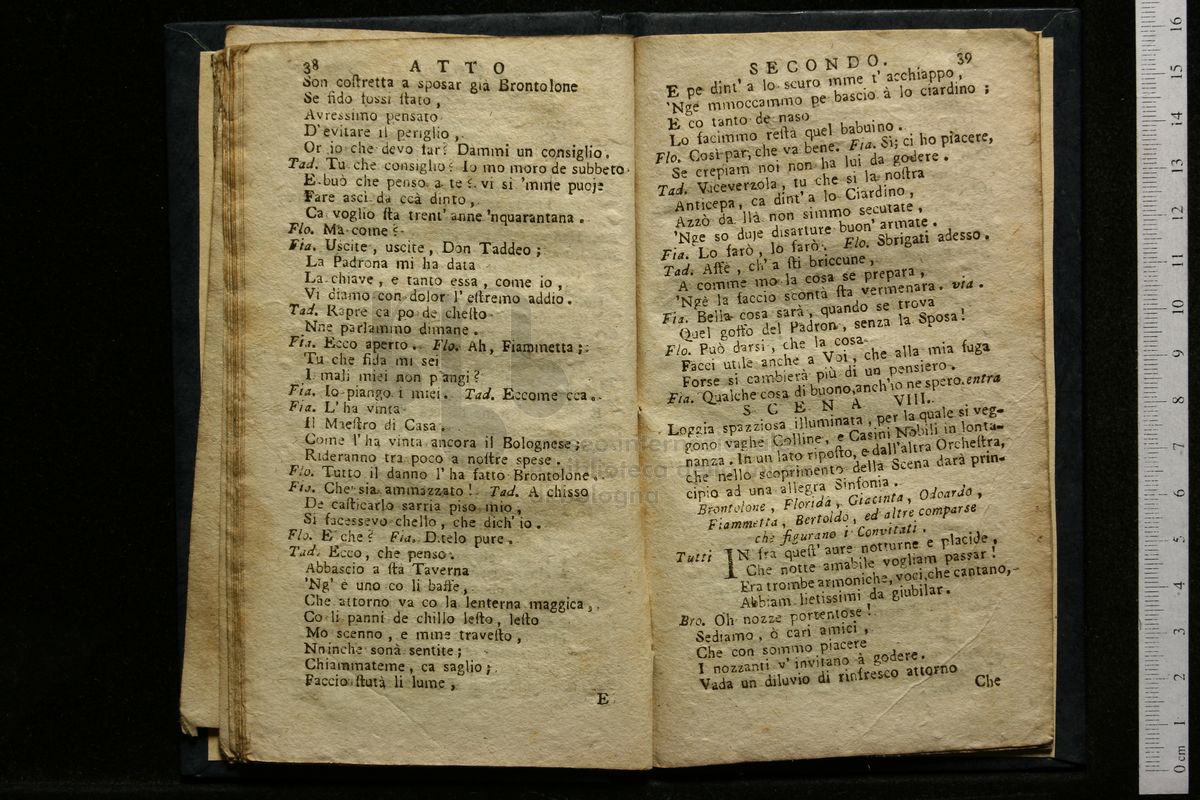 38 ATTO
Son costretta a sposar già Brontolone
Se fido fossi stato,
Avressimo pensato
D'evitare il periglio,
Or io che devo far? Dammi un consiglio.
Tad. Tu che consiglio? Io mo moro de subbeto.
E buò che penso a te? vi si 'mme puoje
Fare ascì da ccà dinto,
Ca voglio sta trent'anne 'nquarantana.
Flo. Ma come?
Fia. Uscite, uscite, Don Taddeo;
La Padrona mi ha data
La chiave, e tanto essa, come io,
Vi diamo con dolor l'estremo addio.
Tad. Rapre ca po de chesto
Nne parlammo dimane.
Fia. Ecco aperto. Flo. Ah, Fiammetta;
Tu che fida mi sei
I mali miei non piangi?
Fia. Io piango i miei. Tad. Eccome cca.
Fia. L'ha vinta
Il Maestro di Casa,
Come l'ha vinta ancora il Bolognese;
Rideranno tra poco a nostre spese.
Flo. Tutto il danno l'ha fatto Brontolone.
Fia. Che sia ammazzato! Tad. A chisso
De casticarlo sarria piso mio,
Si facessevo chello, che dich'io.
Flo. E che? Fia. Ditelo pure.
Tad. Ecco, che penso.
Abbascio a sta Taverna
'Ng' è uno co li baffe,
Che attorno va co la lenterna maggica,
Co li panni de chillo lesto, lesto
Mo scenno, e mme travesto,
Nninche sonà sentite;
Chiammateme, ca saglio;
Faccio stutà li lume,
E
SECONDO. 39
E pe dint' a lo scuro mme t' acchiappo,
'Nge mmoccammo pe bascio à lo ciardino;
E co tanto de naso
Lo facimmo restà quel babuino.
Flo. Così par, che va bene. Fia. Sì; ci ho piacere,
Se crepiam noi non ha lui da godere.
Tad. Viceverzola, tu che si la nostra
Anticepa, ca dint'a lo Ciardino,
Azzò da llà non simmo secutate,
'Nge so duje disarture buon' armate.
Fia. Lo farò, lo farò. Flo. Sbrigati adesso.
Tad. Affè, ch'a sti briccune,
A comme mo la cosa se prepara,
'Ngè la faccio scontà sta vermenara. via.
Fia. Bella cosa sarà, quando se trova
Quel goffo del Padron, senza la Sposa!
Flo. Può darsi, che la cosa
Facci utile anche a Voi, che alla mia fuga
Forse si cambierà più di un pensiero.
Fia. Qualche cosa di buono, anch'io ne spero. entra
SCENA VIII.
Loggia spazziosa illuminata, per la quale si veg-
gono vaghe Colline, e Casini Nobili in lonta-
nanza. In un lato riposto, e dall'altra Orchestra,
che nello scoprimento della Scena darà prin-
cipio ad una allegra Sinfonia.
Brontolone, Florida, Giacinta, Odoardo,
Fiammetta, Bertoldo, ed altre comparse
che figurano i Convitati.
Tutti IN fra quest' aure notturne e placide,
Che notte amabile vogliam passar!
Fra trombe armoniche, voci, che cantano,
Abbiam lietissimi da giubilar.
Bro. Oh nozze portentose!
Sediamo, ò cari amici,
Che con sommo piacere
I nozzanti v' invitano à godere.
Vada un diluvio di rinfresco attorno
Che